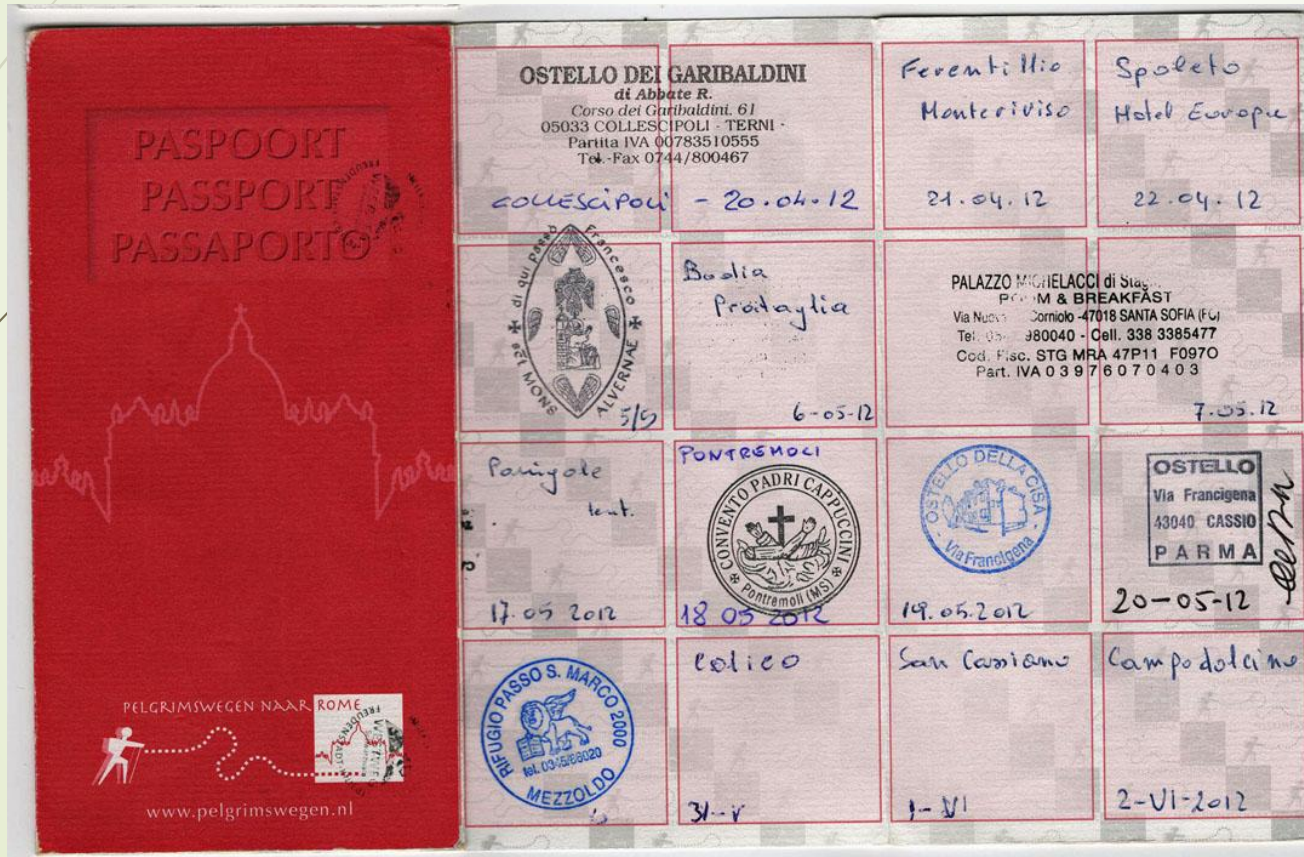 PASPOORT
PASSPORT
PASSAPORTO
PELGRIMSWEGEN NAAR ROME
www.pelgrimswegen.nl
OSTELLO DEI GARIBALDINI
di Abbate R.
Corso dei Garibaldini. 61
05033 COLLESCIPOLI - TERNI -
Partita IVA 00783510555
Tel.-Fax 0744/800467
COLLESCIPOLI - 20.04.12
Ferentillio
Monterivoso
21.04.12
Spoleto
Hotel Europa
22.04.12
di qui passò Francesco
MONS ALVERNAE
5/5
Badia
Prataglia
6-05-12
PALAZZO MICHELACCI di
ROOM & BREAKFAST
Via Corniolo -47018 SANTA SOFIA (FC)
Tel. 980040 - Cell. 338 3385477
Cod. Fisc. STG MRA 47P11 F097O
Part. IVA 03976070403
7.05.12
tent.
17.05 2012
PONTREMOLI
CONVENTO PADRI CAPPUCCINI
Pontremoli (MS)
18 05 2012
OSTELLO DELLA CISA
- Via Francigena -
19.05.2012
OSTELLO
Via Francigena
43040 CASSIO
PARMA
20-05-12
RIFUGIO PASSO S. MARCO 2000
tel. 0345/86020
MEZZOLDO
Colico
31-V
San Cassiano
1-VI
Campodolcino
2-VI-2012